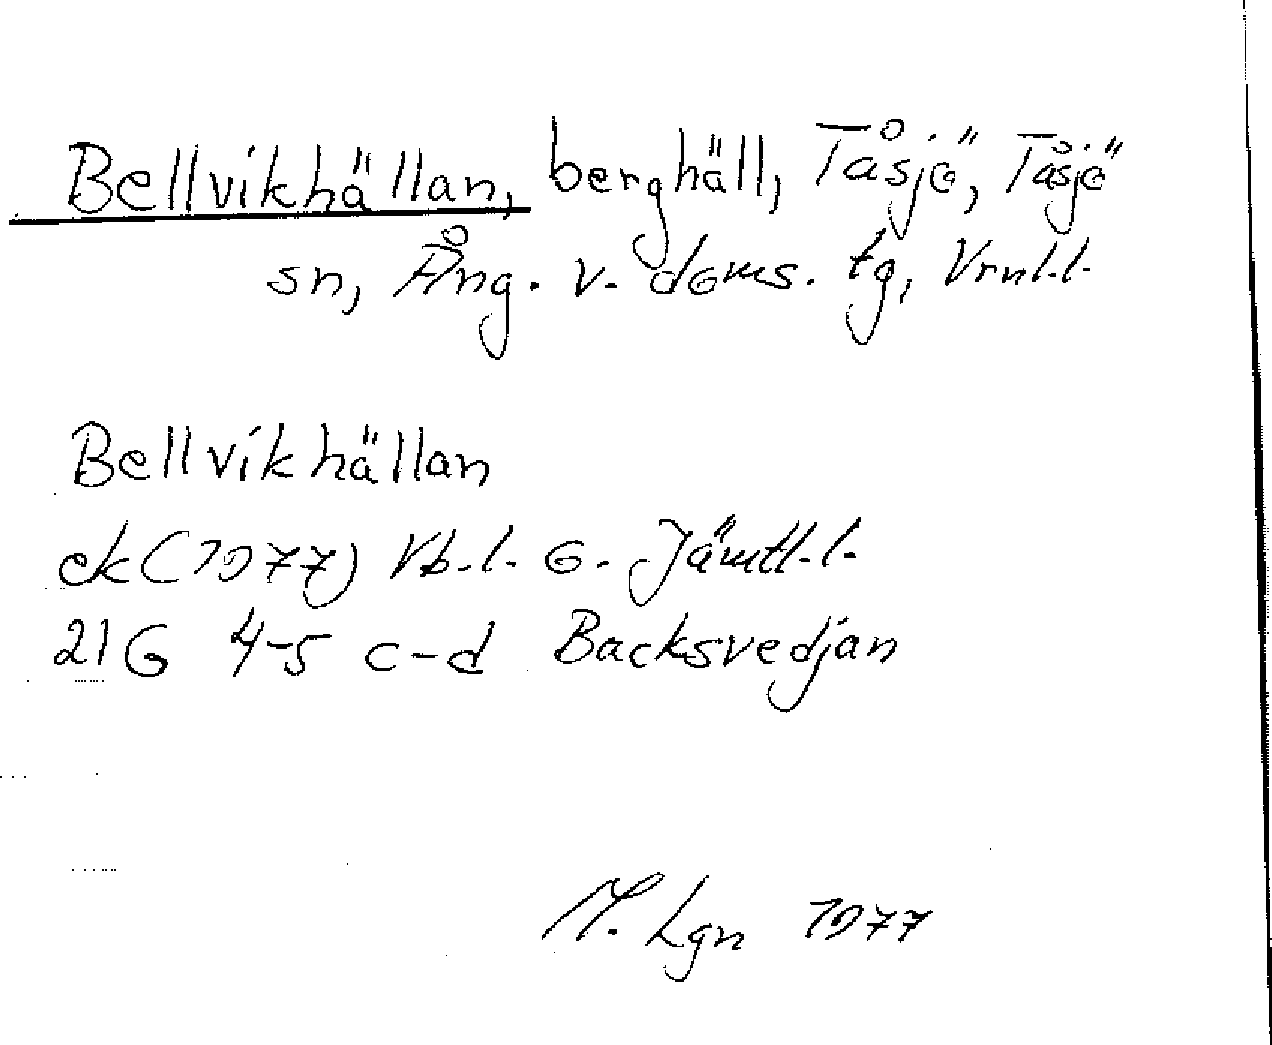 Bellvikhällan, berghäll, Tåsjö, Tåsjö
sn, Ång. v. doms. tg, Vrnl.l.
Bellvikhällan
ek (1977) Vb.l. o. Jämtl.l.
21G 4-5 c-d Backsvedjan
M. Lgn 1977